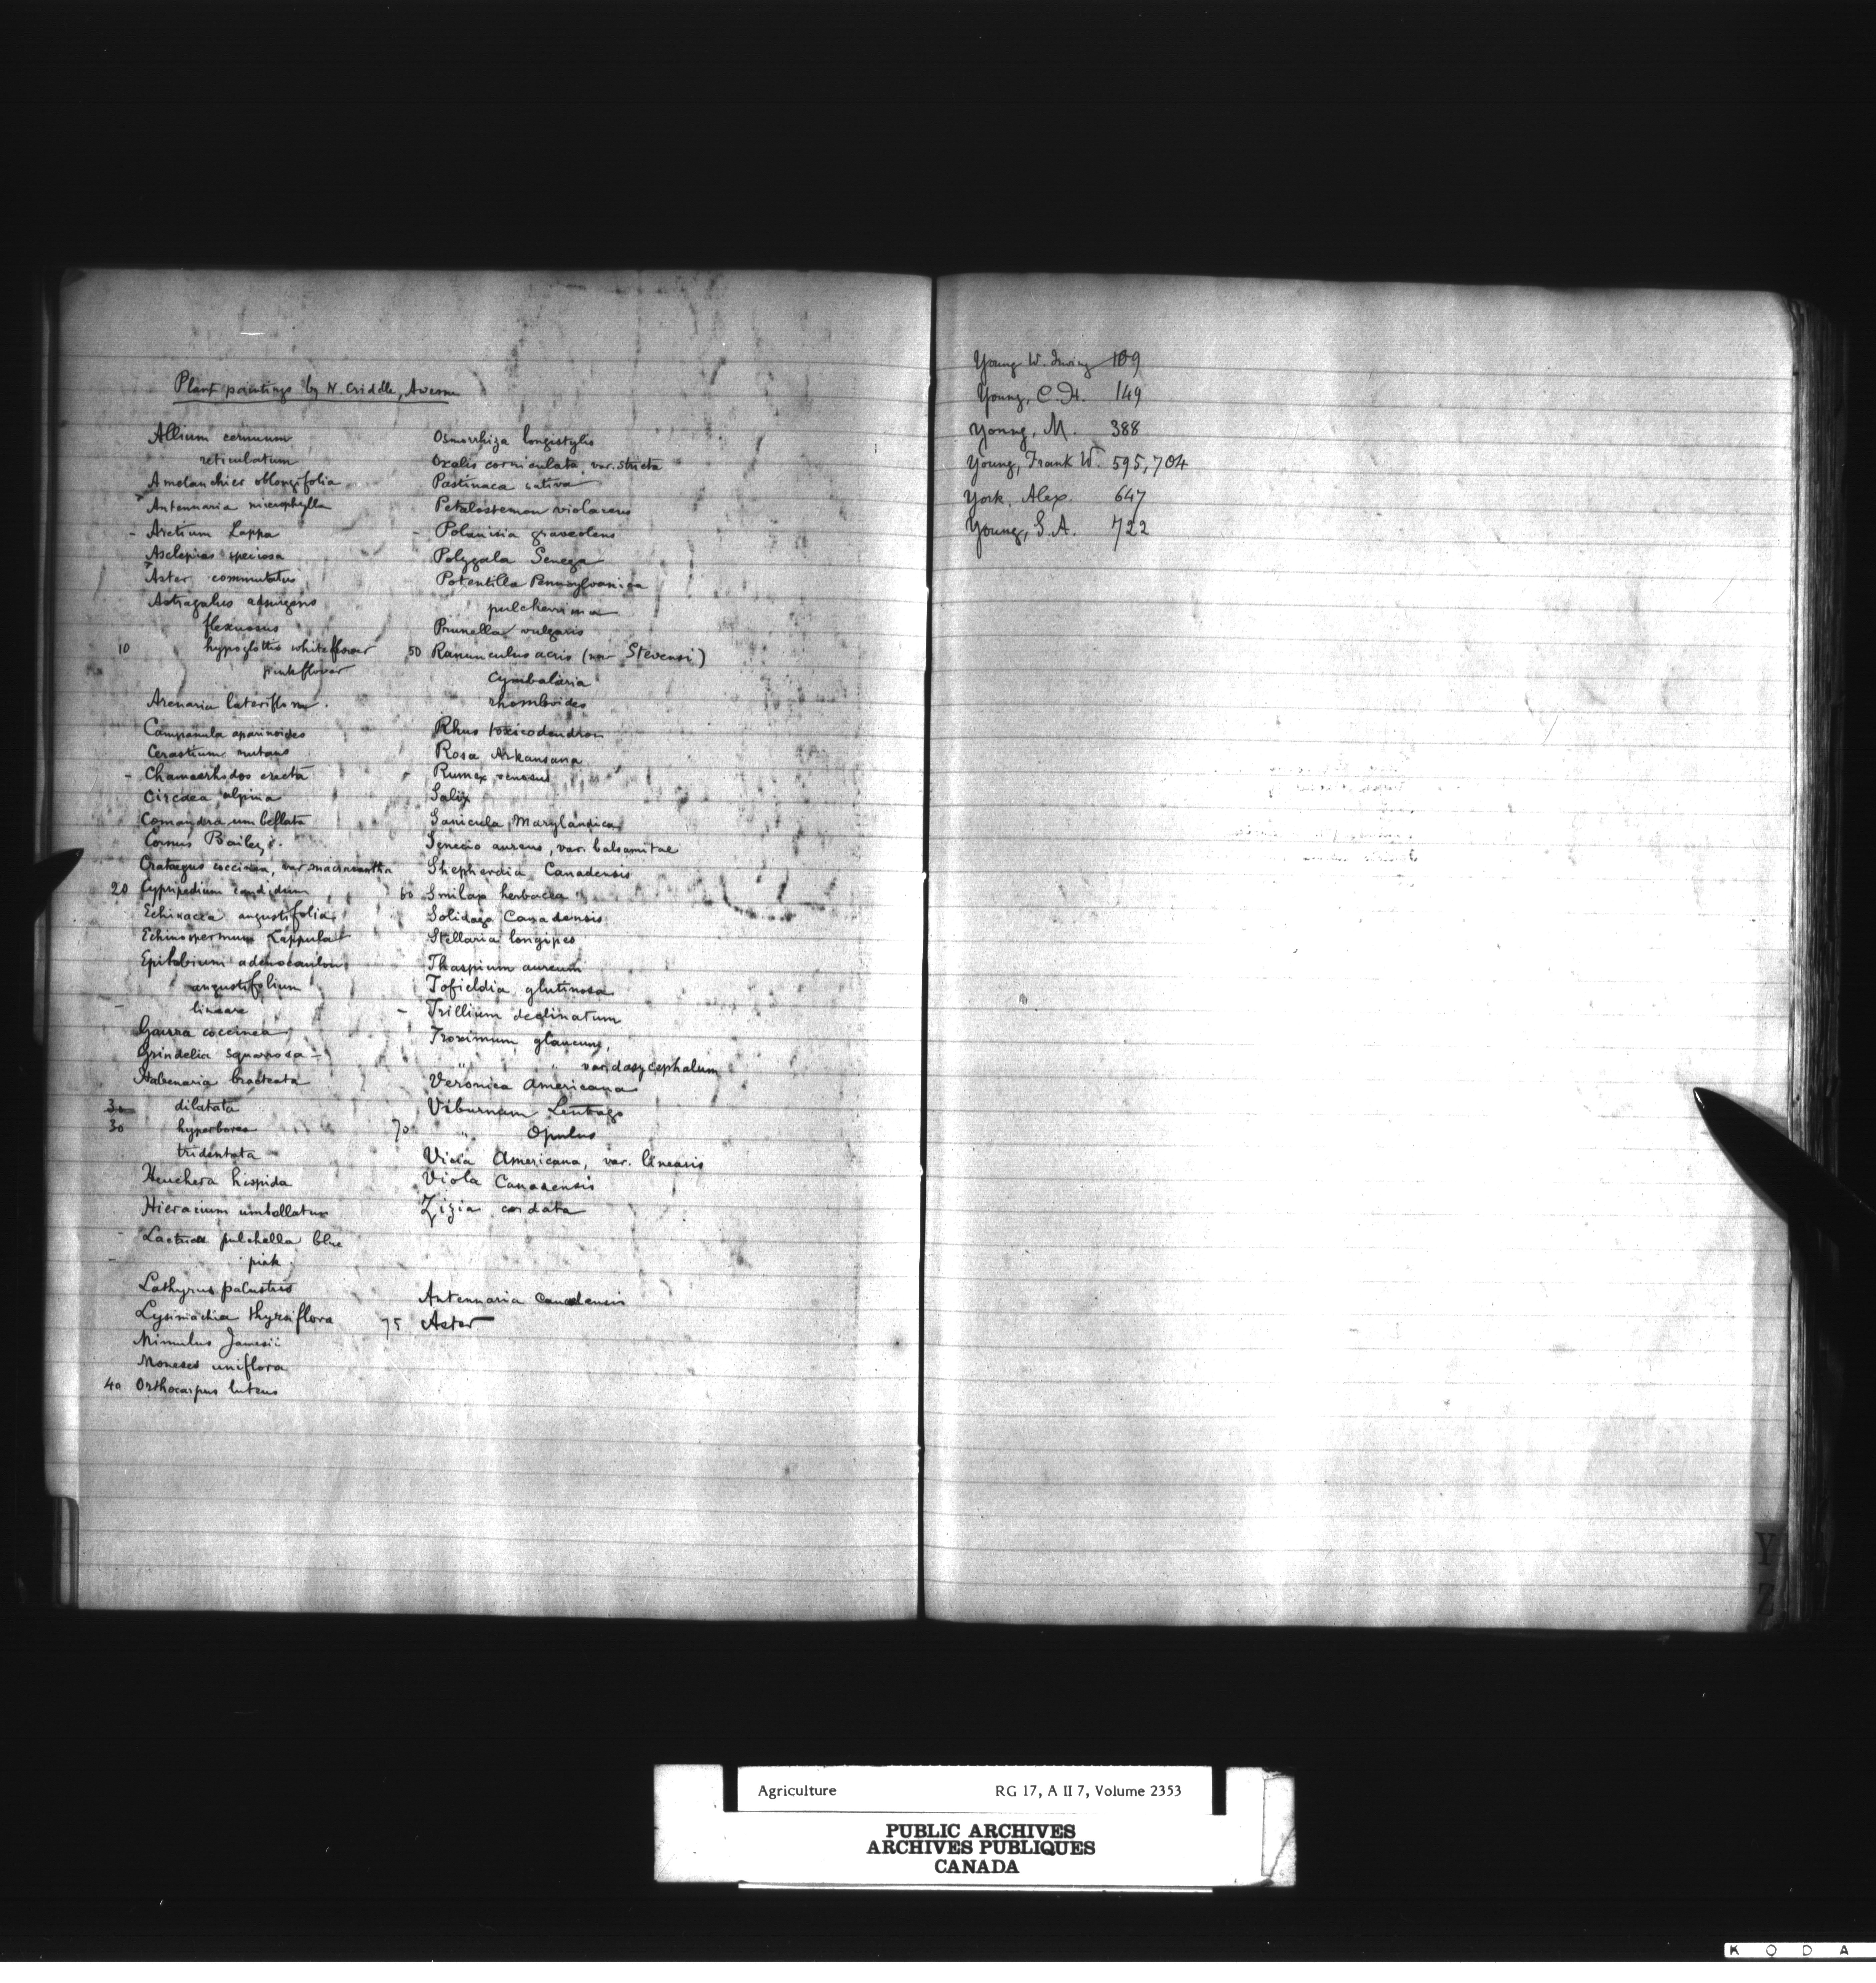 Plant paintings by N. Criddle, Aweme
Allium cernuum
reticulatum
Amelanchier oblongifolia
Antennaria microphylla
- Arctium Lappa
Asclepias speciosa
Aster commutatus
Astragalus adsurgens
flexuosus
10 hypoglottis white flower
pink flower
Arenaria lateriflora.
Campanula aparinoides
Cerastium nutans
- Chamaerhodos erecta
Circaea alpina
Comandra umbellata
Cornus Baileyi.
Crataegus coccinea, var. macracantha
20 Cypripedium candidum
Echinacea angustifolia
Echinospermum Lappula
Epilobium adenocaulon
angustifolium
- lineare
Gaura coccinea
Grindelia squarrosa -
Habenaria bracteata
30 dilatata
30 hyperborea
tridentata
Heuchera hispida
Hieracium umbellatum
- Lactuca pulchella blue
- pink.
Lathyrus palustris
Lysimachia thyrsiflora
Mimulus Jamesii
Moneses uniflora
40 Orthocarpus luteus
Osmorrhiza longistylis
Oxalis corniculata, var. stricta
Pastinaca sativa
Petalostemon violaceus
- Polanisia graveolens
Polygala Senega
Potentilla Pennsylvanica
pulcherrima
Prunella vulgaris
50 Ranunculus acris (var Stevensi)
Cymbalaria
rhomboides
Rhus toxicodendron
Rosa Arkansana
- Rumex venosus
Salix
Sanicula Marylandica
Senecio aureus, var. balsamitae
Shepherdia Canadensis
60 Smilax herbacea
Solidago Canadensis
Stellaria longipes
Thaspium aureum
Tofieldia glutinosa
- Trillium declinatum
Troximum glaucum,
" " var. dasycephalum
Veronica Americana
Viburnum Lentago
70 " Opulus
Vicia Americana, var. linearis
Viola Canadensis
Zizia cordata
Antennaria canadensis
75 Aster
Young W. Irving 109
Young, C. H. 149
Young, M. 388
Young, Frank W. 595, 704
York, Alex. 647
Young, S. A. 722
Y
Z
Agriculture RG 17, A II 7, Volume 2353
PUBLIC ARCHIVES
ARCHIVES PUBLIQUES
CANADA
K O D A